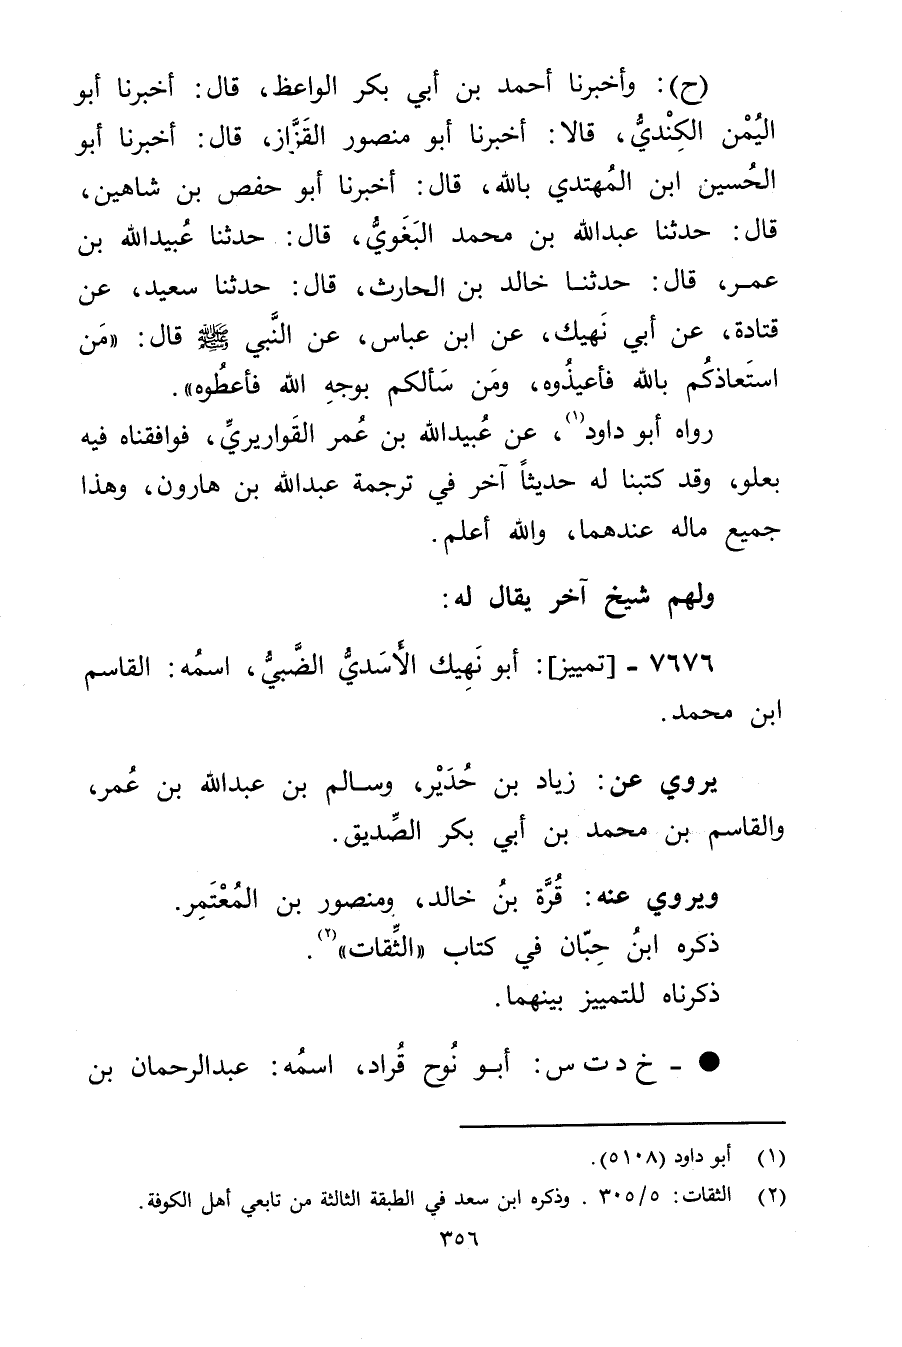 (ح): وأخبرنا أحمد بن أبي بكر الواعظ، قال: أخبرنا أبو
اليُمْن الكِنْديُّ، قالا: أخبرنا أبو منصور القَزَّاز، قال: أخبرنا أبو
الحُسين ابن المُهتدي بالله، قال: أخبرنا أبو حفص بن شاهين،
قال: حدثنا عبدالله بن محمد البَغَويُّ، قال: حدثنا عُبيدالله بن
عمر، قال: حدثنا خالد بن الحارث، قال: حدثنا سعيد، عن
قتادة، عن أبي نَهيك، عن ابن عباس، عن النَّبي ﷺ قال: «مَن
استَعاذكُم بالله فأعيذُوه، ومَن سَألكم بوجهِ الله فأعطُوه».
رواه أبو داود(١)، عن عُبيدالله بن عُمر القَواريريِّ، فوافقناه فيه
بعلو، وقد كتبنا له حديثاً آخر في ترجمة عبدالله بن هارون، وهذا
جميع ماله عندهما، والله أعلم.
ولهم شيخ آخر يقال له:
٧٦٧٦ - [تمييز]: أبو نَهِيك الأَسَديُّ الضَّبيُّ، اسمُه: القاسم
ابن محمد.
يروي عن: زياد بن حُدَيْر، وسالم بن عبدالله بن عُمر،
والقاسم بن محمد بن أبي بكر الصِّديق.
ويروي عنه: قُرَّة بنُ خالد، ومنصور بن المُعْتَمِر.
ذكره ابنُ حِبّان في كتاب «الثِّقات»(٢).
ذكرناه للتمييز بينهما.
● - خ د ت س: أبو نُوح قُراد، اسمُه: عبدالرحمان بن
(١) أبو داود (٥١٠٨).
(٢) الثقات: ٣٠٥/٥ . وذكره ابن سعد في الطبقة الثالثة من تابعي أهل الكوفة.
٣٥٦